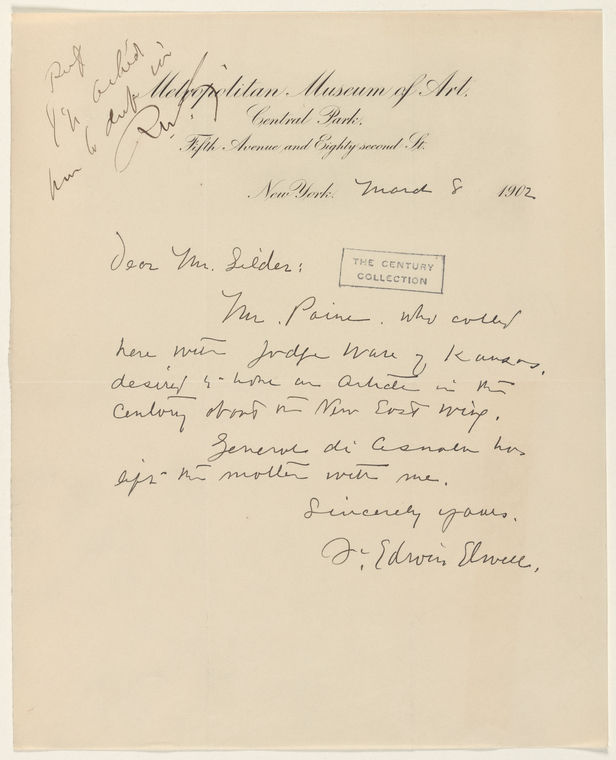 I've asked
him to drop in
Metropolitan Museum of Art.
Central Park,
Fifth Avenue and Eighty second St.
New York, March 8 1902
Dear Mr. Gilder:
THE CENTURY
COLLECTION
Mr. Paine. who called
here with Judge Ware of Kansas,
desired to have an article in the
Century about the New East wing.
General di Cesnola has
left the matter with me.
Sincerely yours.
F. Edwin Elwell.